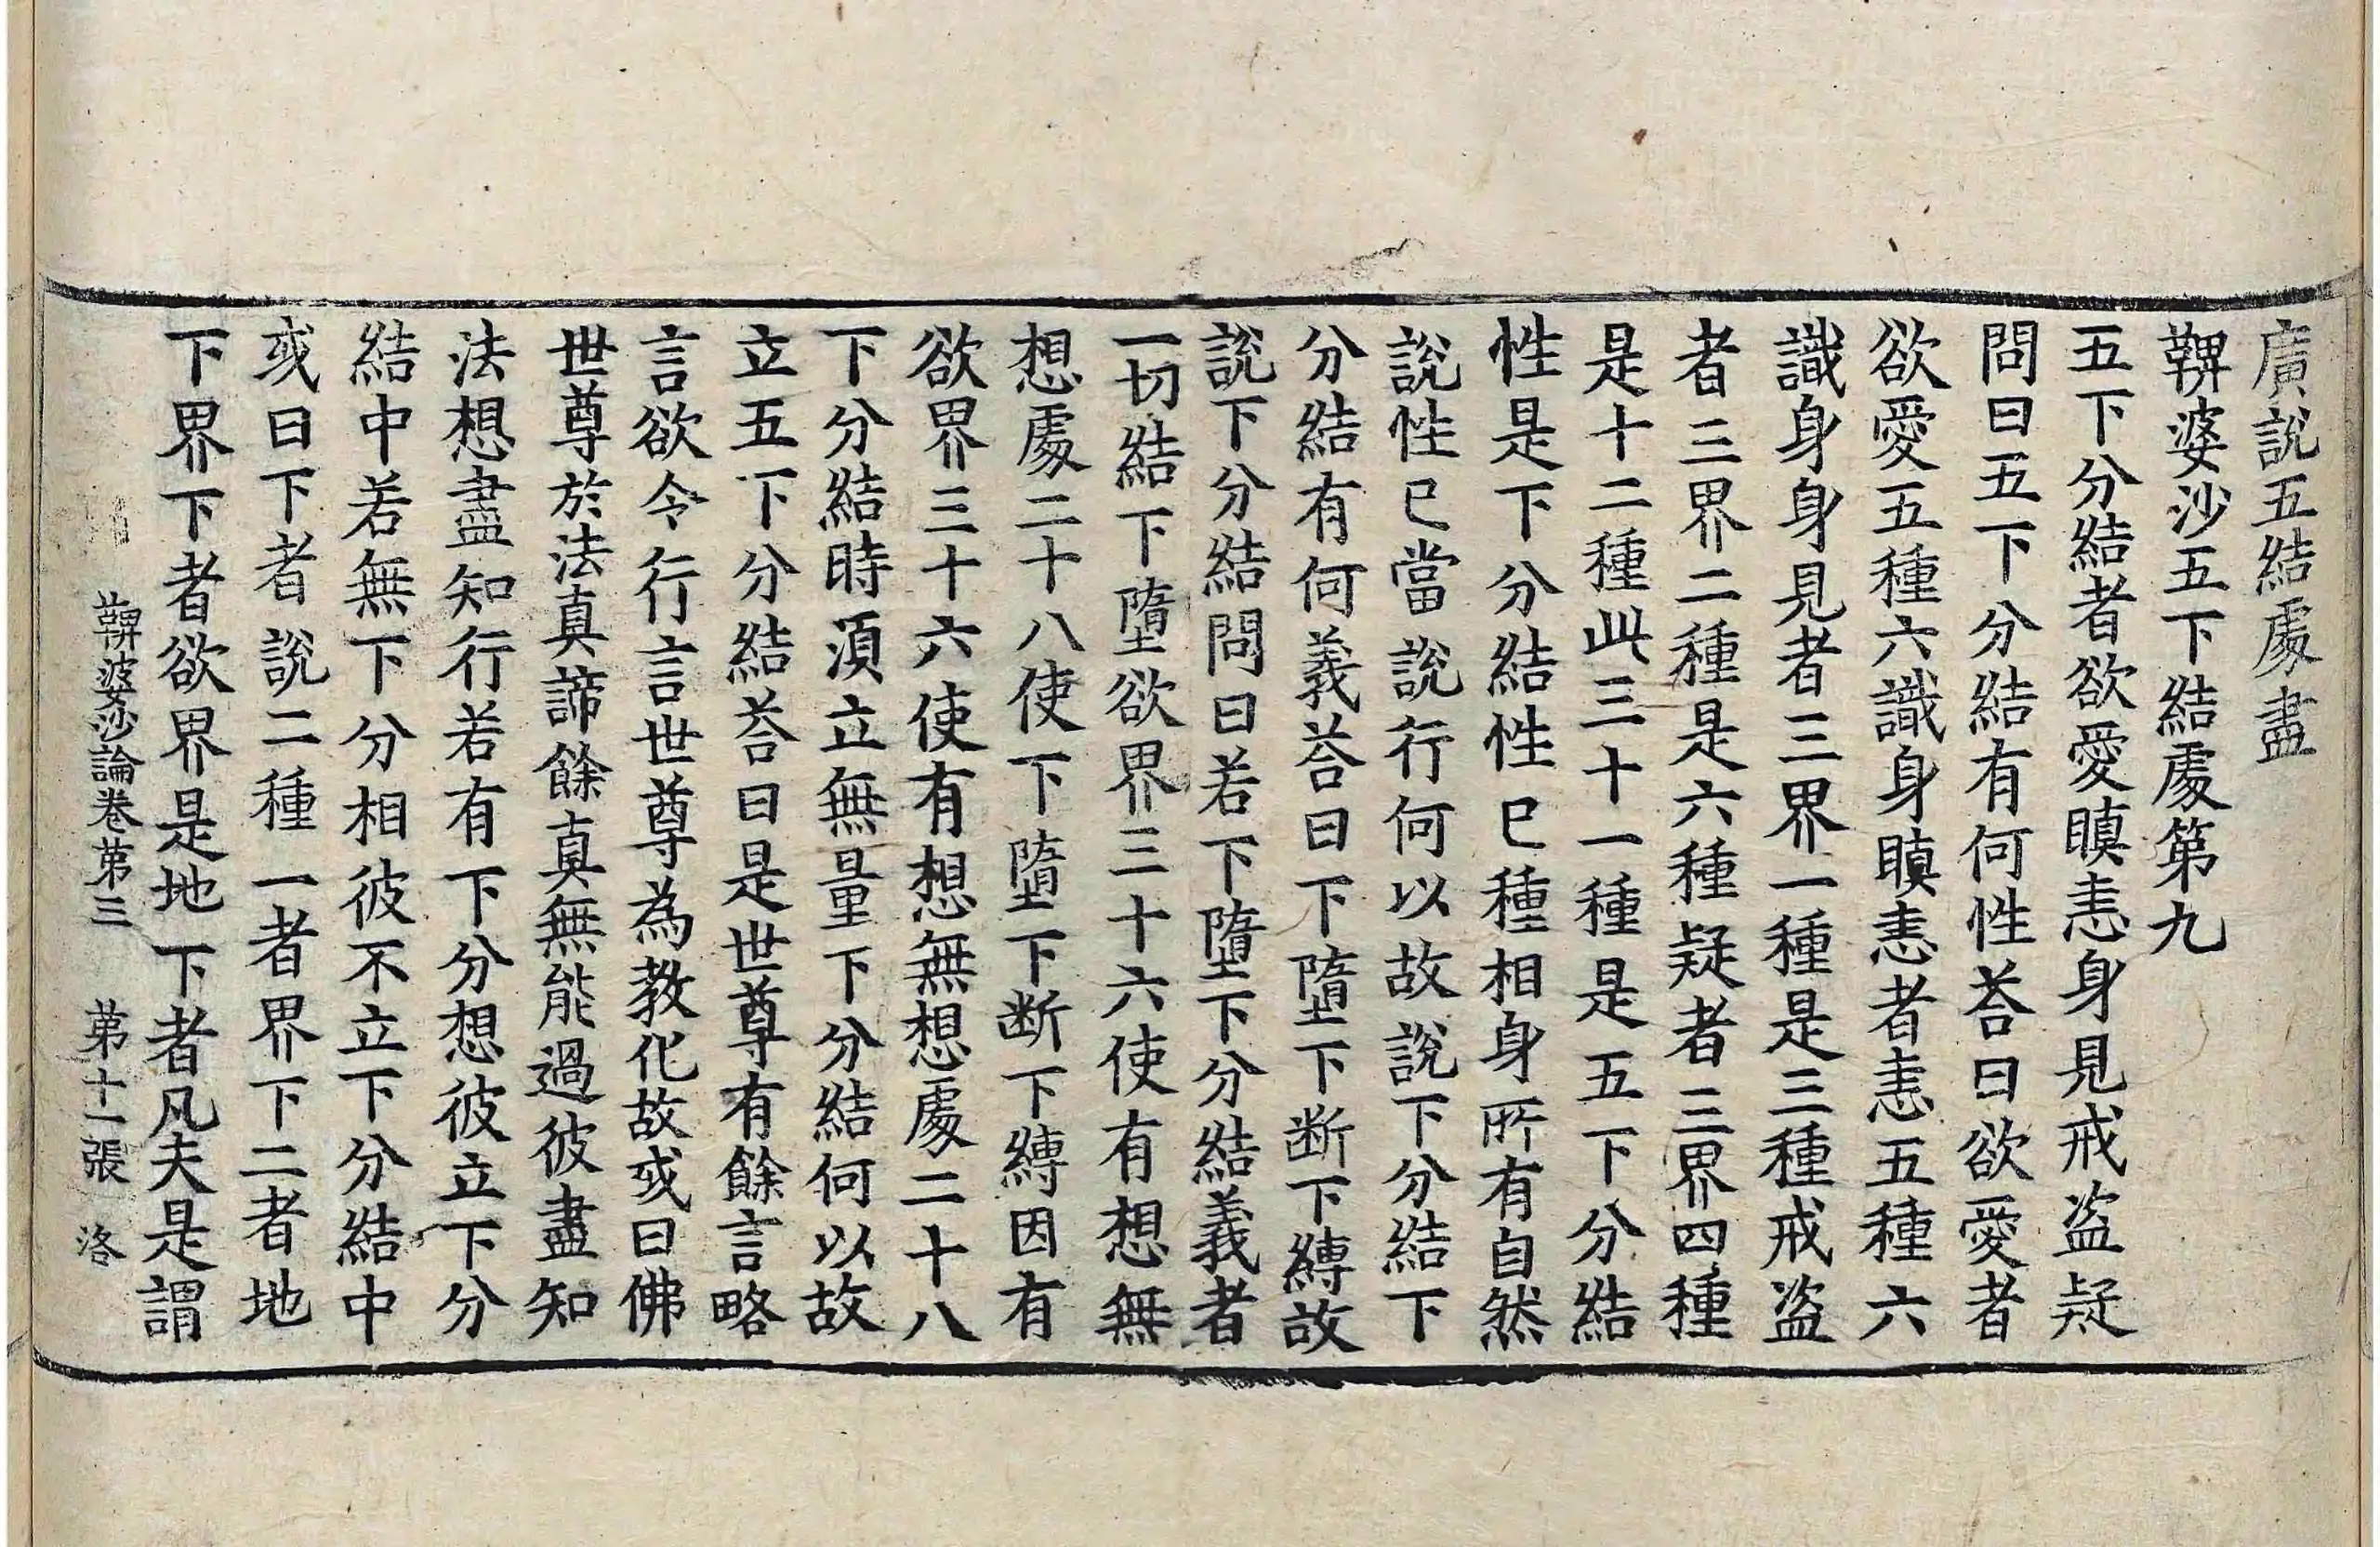 廣說五結處盡
鞞婆沙五下結處第九
五下分結者欲愛瞋恚身見戒盜疑
問曰五下分結有何性荅曰欲愛者
欲愛五種六識身瞋恚者恚五種六
識身身見者三界一種是三種戒盜
者三界二種是六種疑者三界四種
是十二種此三十一種是五下分結
性是下分結性已種相身所有自然
說性已當說行何以故說下分結下
分結有何義荅曰下墮下断下縛故
說下分結問曰若下墮下分結義者
一切結下墮欲界三十六使有想無
想處二十八使下墮下断下縛因有
欲界三十六使有想無想處二十八
下分結時湏立無量下分結何以故
立五下分結荅曰是世尊有餘言略
言欲令行言世尊為教化故或曰佛
世尊於法真諦餘真無能過彼盡知
法想盡知行若有下分想彼立下分
結中若無下分相彼不立下分結中
或曰下者說二種一者界下二者地
下界下者欲界是地下者凡夫是謂
鞞婆沙論卷第三 第十一張 洛